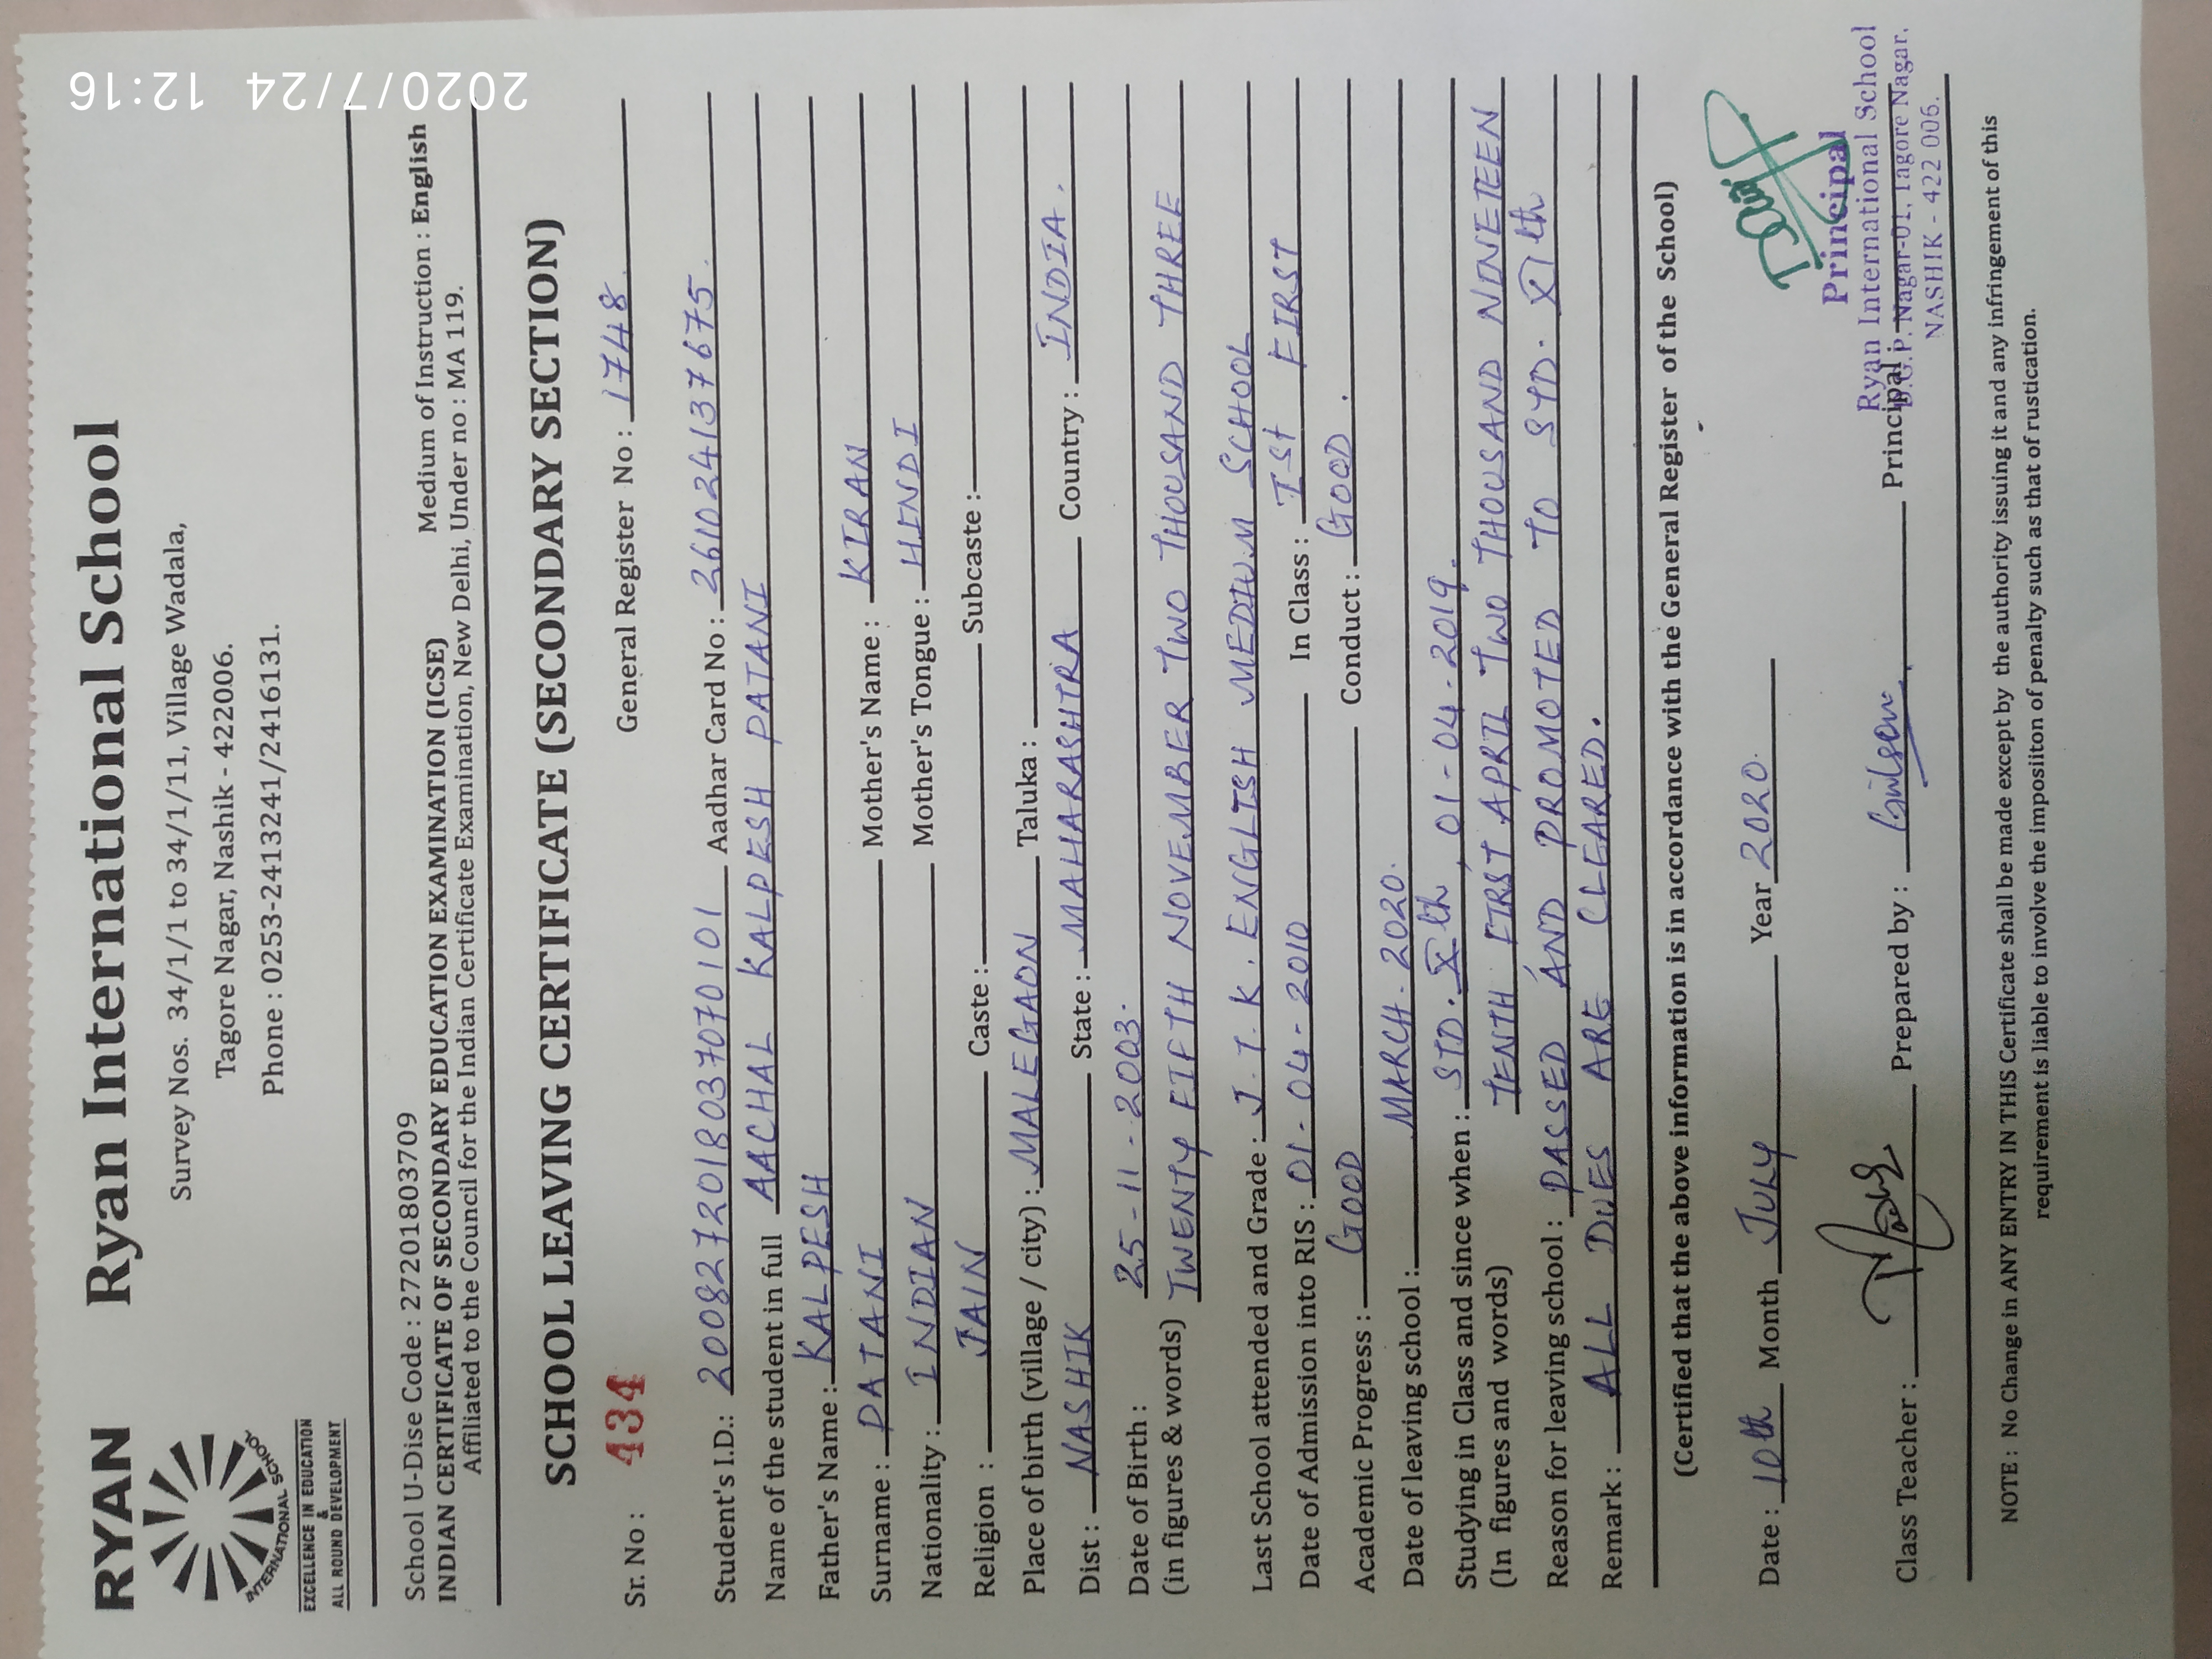 RYAN
INTERNATIONAL SCHOOL
EXCELLENCE IN EDUCATION
&
ALL ROUND DEVELOPMENT
Ryan International School
Survey Nos. 34/1/1 to 34/1/11, Village Wadala,
Tagore Nagar, Nashik - 422006.
Phone : 0253-2413241/2416131.
2020/7/24 12:16
School U-Dise Code : 27201803709 Medium of Instruction : English
INDIAN CERTIFICATE OF SECONDARY EDUCATION EXAMINATION (ICSE)
Affiliated to the Council for the Indian Certificate Examination, New Delhi, Under no : MA 119.
SCHOOL LEAVING CERTIFICATE (SECONDARY SECTION)
Sr. No : 434 General Register No : 1748
Student's I.D.: 2008272018037070101 Aadhar Card No : 261024137675.
Name of the student in full AACHAL KALPESH PATANI
Father's Name : KALPESH
Surname : PATANI Mother's Name : KIRAN
Nationality : INDIAN Mother's Tongue : HINDI
Religion : JAIN Caste : Subcaste :
Place of birth (village / city) : MALEGAON Taluka :
Dist : NASHIK State : MAHARASHTRA Country : INDIA.
Date of Birth : 25-11-2003.
(in figures & words) TWENTY FIFTH NOVEMBER TWO THOUSAND THREE
Last School attended and Grade : J. T. K. ENGLISH MEDIUM SCHOOL
Date of Admission into RIS : 01-04-2010 In Class : Ist FIRST
Academic Progress : GOOD Conduct : GOOD.
Date of leaving school : MARCH-2020.
Studying in Class and since when : STD. Xth, 01-04-2019.
(In figures and words) TENTH FIRST APRIL TWO THOUSAND NINETEEN
Reason for leaving school : PASSED AND PROMOTED TO STD. XIth
Remark : ALL DUES ARE CLEARED.
(Certified that the above information is in accordance with the General Register of the School)
Date : 10th Month JULY Year 2020.
Principal
Ryan International School
D.G.P. Nagar-01, Tagore Nagar,
NASHIK - 422 006.
Class Teacher : Prepared by : Principal :
NOTE : No Change in ANY ENTRY IN THIS Certificate shall be made except by the authority issuing it and any infringement of this
requirement is liable to involve the impositon of penalty such as that of rustication.